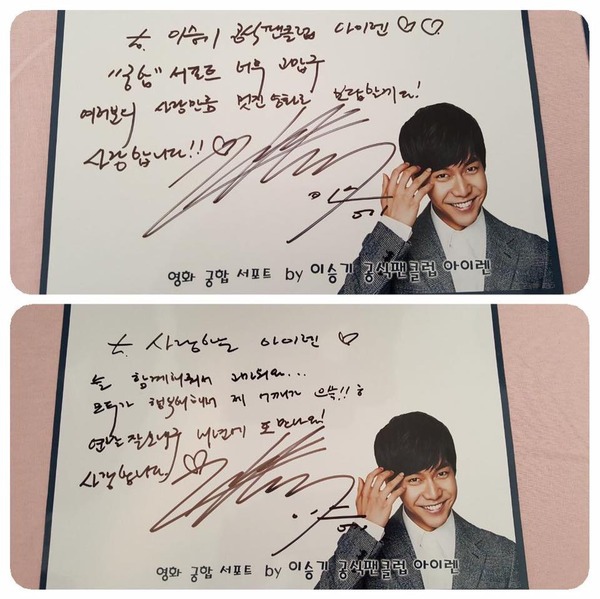 To. 이승기 공식팬클럽 아이렌 ♡♡
"궁합" 서포트 너무 고맙구
여러분의 사랑만큼 멋진 보답할게요!
사랑합니다!! ♡
영화 궁합 서포트 by 이승기 공식팬클럽 아이렌
To. 사랑하는 아이렌 ♡
늘 함께해줘서 고마워요...
모두가 행복해해서 제 어깨가 으쓱!! ㅎ
연말 잘 보내구 내년에 또 만나요!
사랑합니다. ♡
영화 궁합 서포트 by 이승기 공식팬클럽 아이렌